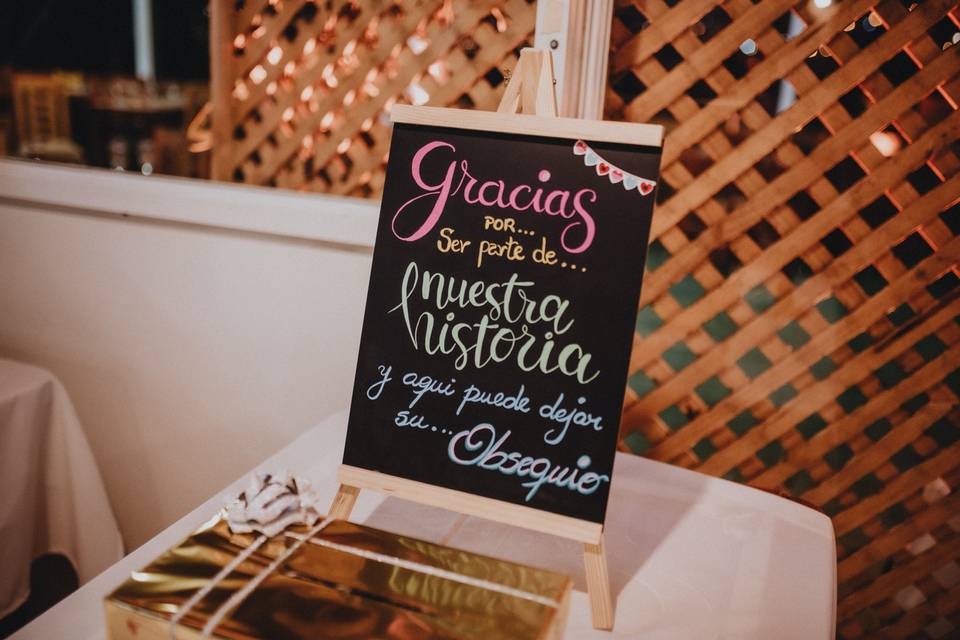 Gracias
por...
Ser parte de...
nuestra
historia
y aqui puede dejar
su... Obsequio